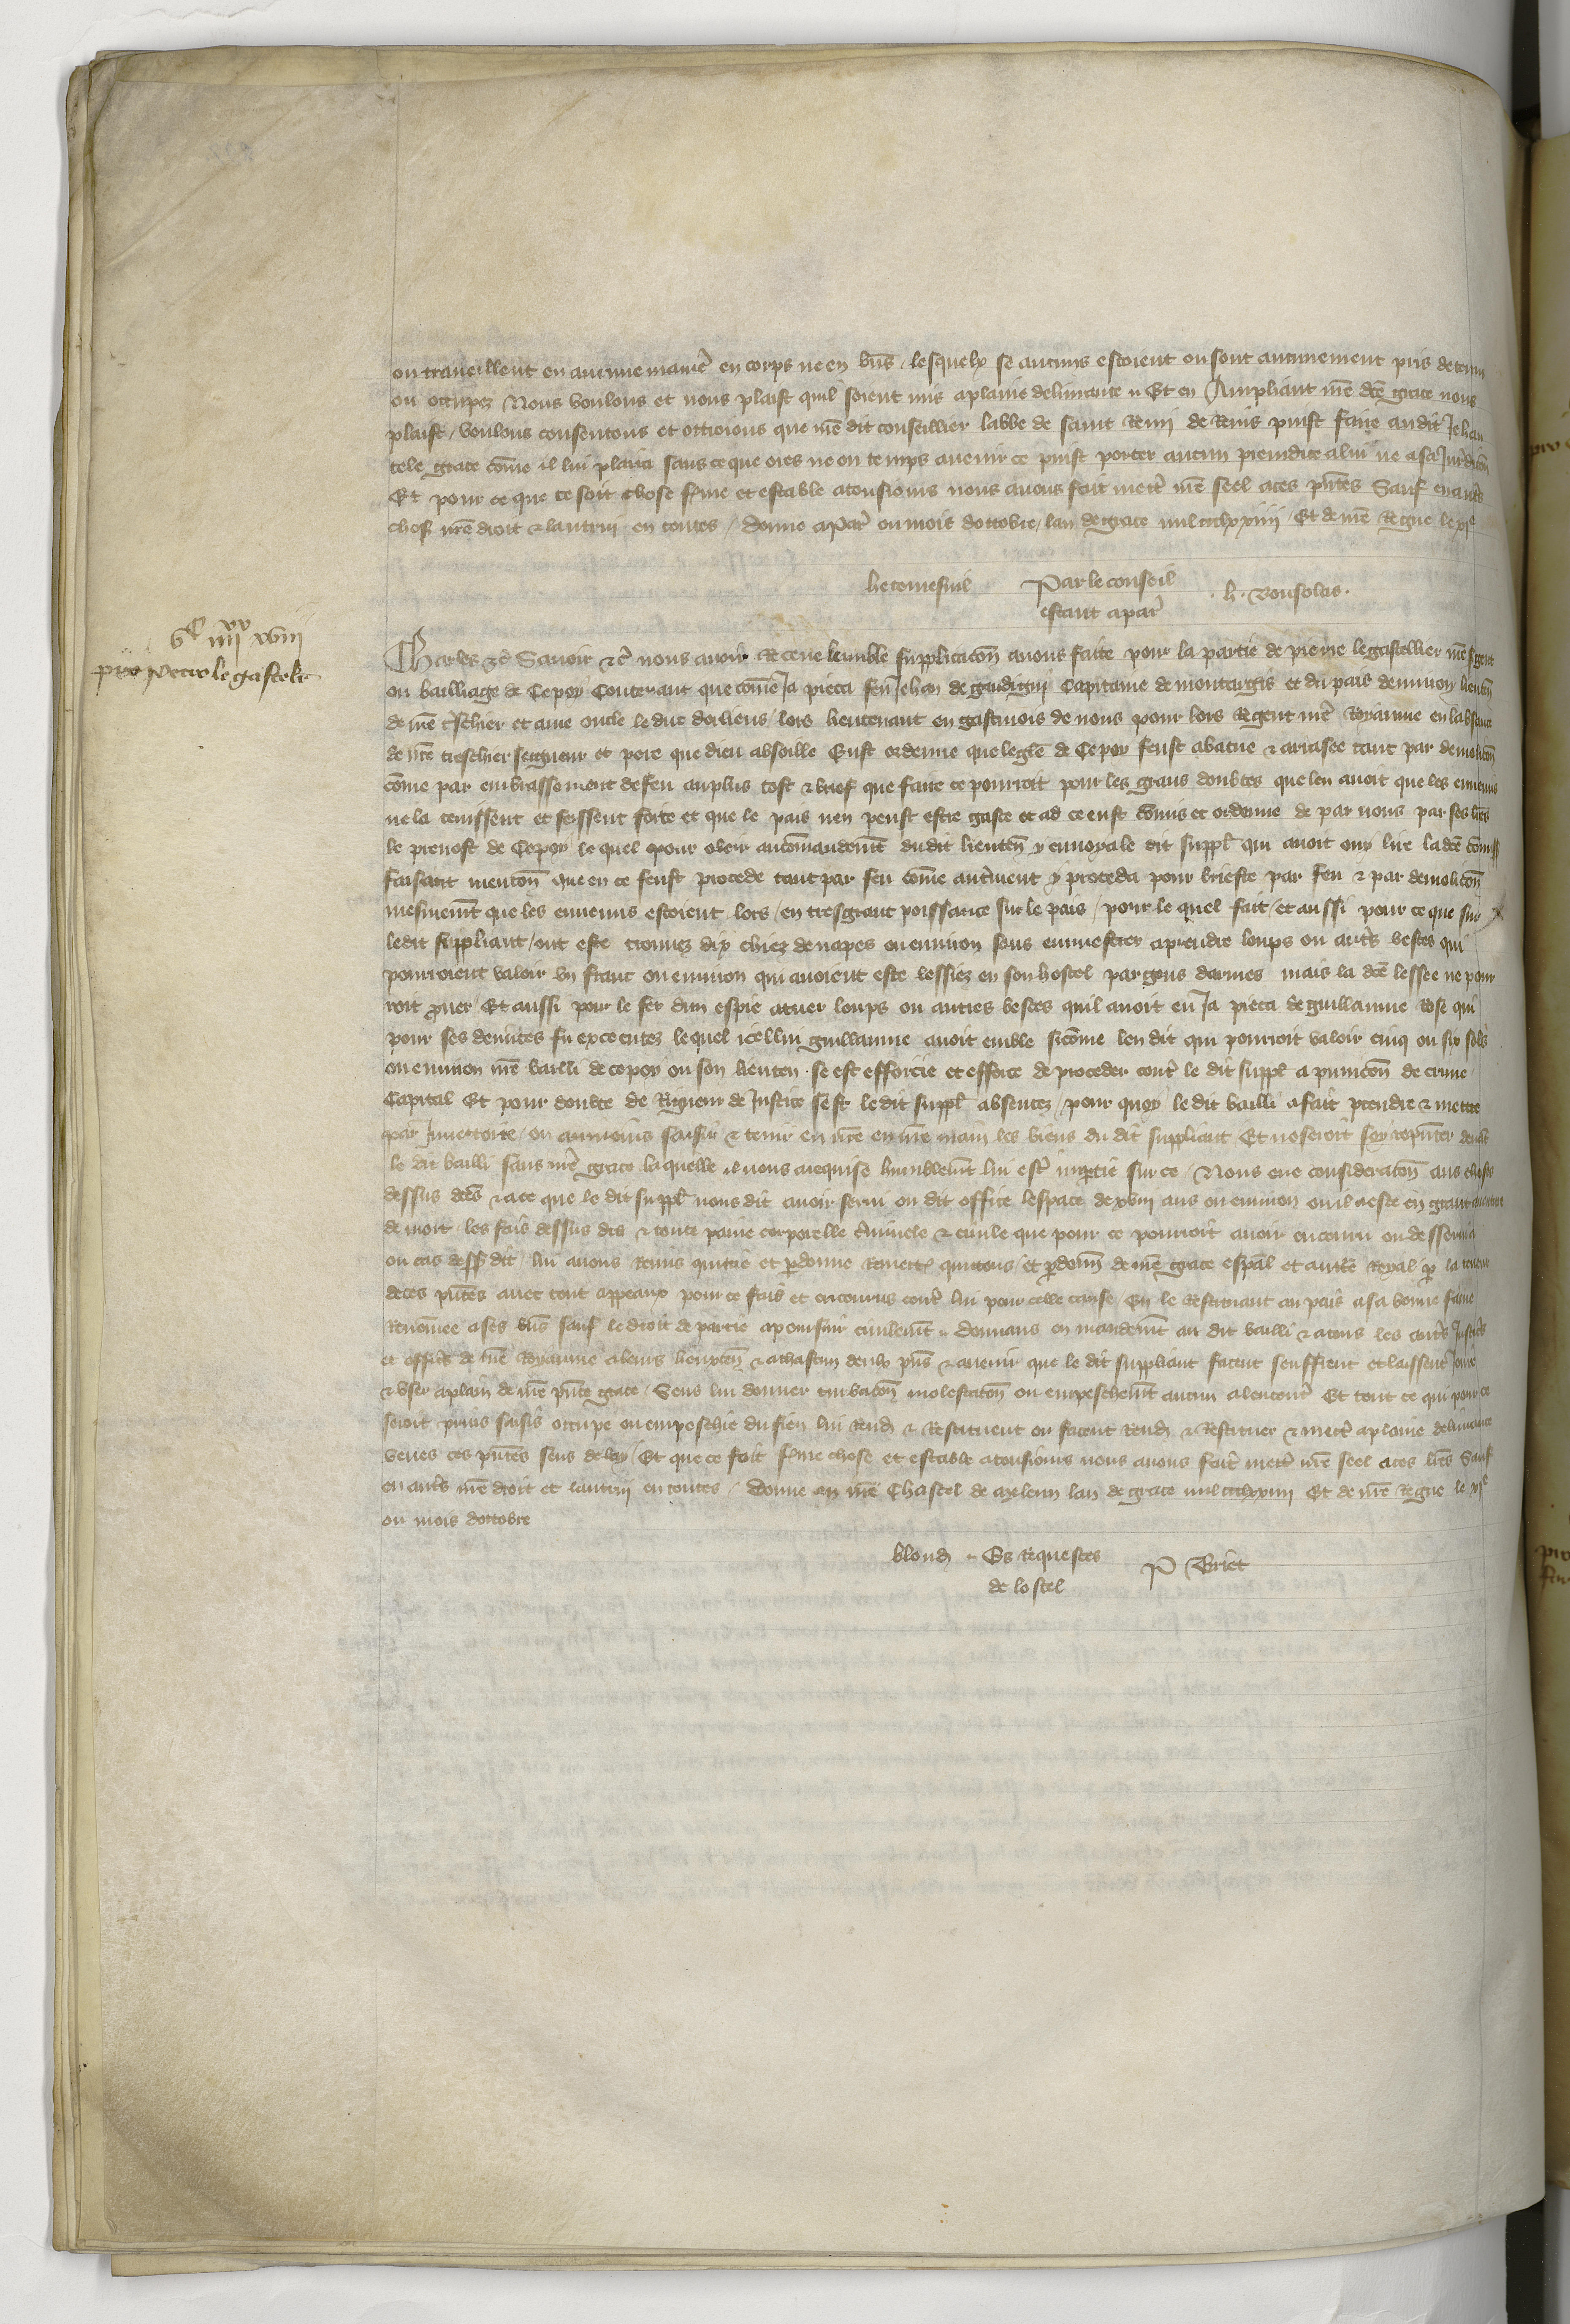 ou traveillent en aucune manier̃ en corps ne en bñs / lesquelx se aucuns estoient ou sont aucunement pris detenu
ou occupez Nous voulons et nous plaist quil soient mis a plaine delivrance Et en Ampliant nr̃e dc̃e grace nous
plaist / voulons consentons et ottroions que nr̃e dit conseillier labbe de saint Remi de Reins puist faire au dit Jehan
tele grace cõme il lui plaira sans ce que ores ne ou temps avenir ce puist porter aucun preiudice a lui ne a sa Juridicõn
Et pour ce que ce soit chose ferme et estable a tousiours nous avons fait mettr̃ nr̃e seel a ces pñtes Sauf en autr̃s
choses nr̃e droit & lautrui en toutes / Donne a Par̃ ou mois doctobre / lan de grace mil ccclxxiiii Et de nr̃e Regne le xj^e
hetomesnil Par le conseil
estant a par̃ . h . Vousolas .
v^c iiii^xx xviii
pro Petro le gastelr̃
Charles &c̃ Savoir &c̃ nous avoir Receue lumble supplicacõn a nous faite pour la partie de pierre le gastellier nr̃e sgent
ou bailliage de Cepoy Contenant que cõme Ja pieca feu Jehan de gaudigni Capitaine de montargis et du pais denviron lieuteñ
de nr̃e tr̃schier et ame oncle le duc dorliens / lors lieutenant en gastinois de nous pour lors Regent nr̃e Royaume en labsence
de nr̃e treschier seigneur et pere que dieu absoille Eust ordenne que leglẽ de Cepoy feust abatue & arrasee tant par demolicõn
cõme par embrassement de feu au plus tost & brief que faire ce pourroit pour les grans doubtes que len avoit que les ennemis
ne la tenissent et feissent forte et que le pais nen peust estre gaste et ad ce eust cõmis et ordenne de par nous par ses lr̃es
le prevost de Cepoy le quel pour obeir au cõmandemt̃ du dit lieuteñ y envoya le dit suppl̃ qui avoit ouy lire ladc̃e cõmiss̃
faisant mencõn que en ce feust procede tant par feu cõme autr̃ment y proceda pour briefte par feu & par demolicõn
mesmemt̃ que les ennemis estoient lors / en tresgrant poissance sur le pais / pour le quel fait / et aussi pour ce que sur
ledit suppliant / ont este trouvez dix chiez de napes ou environ a prendre loups ou autr̃s bestes qui
pourroient valoir un franc ou environ qui avoient este lessiez en son hostel par gens darmes mais la dc̃e lessee ne pour
roit p̃uer Et aussi pour le fer dun espie a tuer loups ou autres bestes quil avoit eu Ja pieca de guillaume Rose qui
pour ses demerites fu excecutez lequel icellui guillaume avoit emble sicõme len dit qui pourroit valoir cinq ou six solz
ou environ nr̃e bailli de cepoy ou son lieuteñ . se est efforcie et efforce de proceder contr̃ le dit suppl̃ a punicõn de crime
Capital Et pour doubte de Rigueur de Justice sest le dit suppl̃ absentez / pour quoy le dit bailli a fait prendre & mettre
par Inventoire / ou aumoins saisir & tenir en nr̃e en nr̃e main les biens du dit suppliant Et noseroit soy rep̃nter devãt
le dit bailli sans nr̃e grace laquelle il nous a requise humblemt̃ lui estr̃ impartie sur ce / Nous eue consideracõn aus choses
dessus dc̃es & a ce que le dit suppl̃ nous dit avoir servi ou dit office lespace de xviii ans ou environ ou il a este en grant aventure
de mort . les fais dessus dis & toute paine corporelle c̃minele & civile que pour ce pourroit avoir encouru ou desservir
ou cas dess̃ dit lui avons Remis quictie et p̃donne Remett̃ quittons / et p̃donñ de nr̃e grace esp̃al et aucte Royal p̃ la teneur
de ces pñtes avec tout appeaux pour ce fais et encourus contr̃ lui pour celle cause / En le Restituant au pais a sa bonne fame
Renõmee a ses bñs sauf le droit de partie a poursuir civilemt̃ Donnans en mandemt̃ au dit bailli & a tous les autr̃s Justic̃s
et offic̃s de nr̃e Royaume a leurs lieuxteñ & a chascun deulx pñs & avenir que le dit suppliant facent seuffrent et laissent Joir
& user a plain de nr̃e pñte grace / Sens lui donner turbacõn molestacõn ou empeschemt̃ aucun a lencontr̃ Et tout ce qui pour ce
seroit prins saisis occupe ou empeschie du sien lui Rend̃ & Restituent ou facent Rend̃ & Restituer & mectr̃ a plaine delivrance
veues ces pñtes sens delay / Et que ce soit ferme chose et estable a tousiours nous avons fait mettr̃ nr̃e seel a ces lr̃es Sauf
en autr̃s nr̃e droit et lautrui en toutes / Donne en nr̃e Chastel de Meleun lan de grace mil ccclxxiiii Et de nr̃e Regne le xj^e
ou mois doctobre
blond̃ Es Requestes
de lostel P Briet